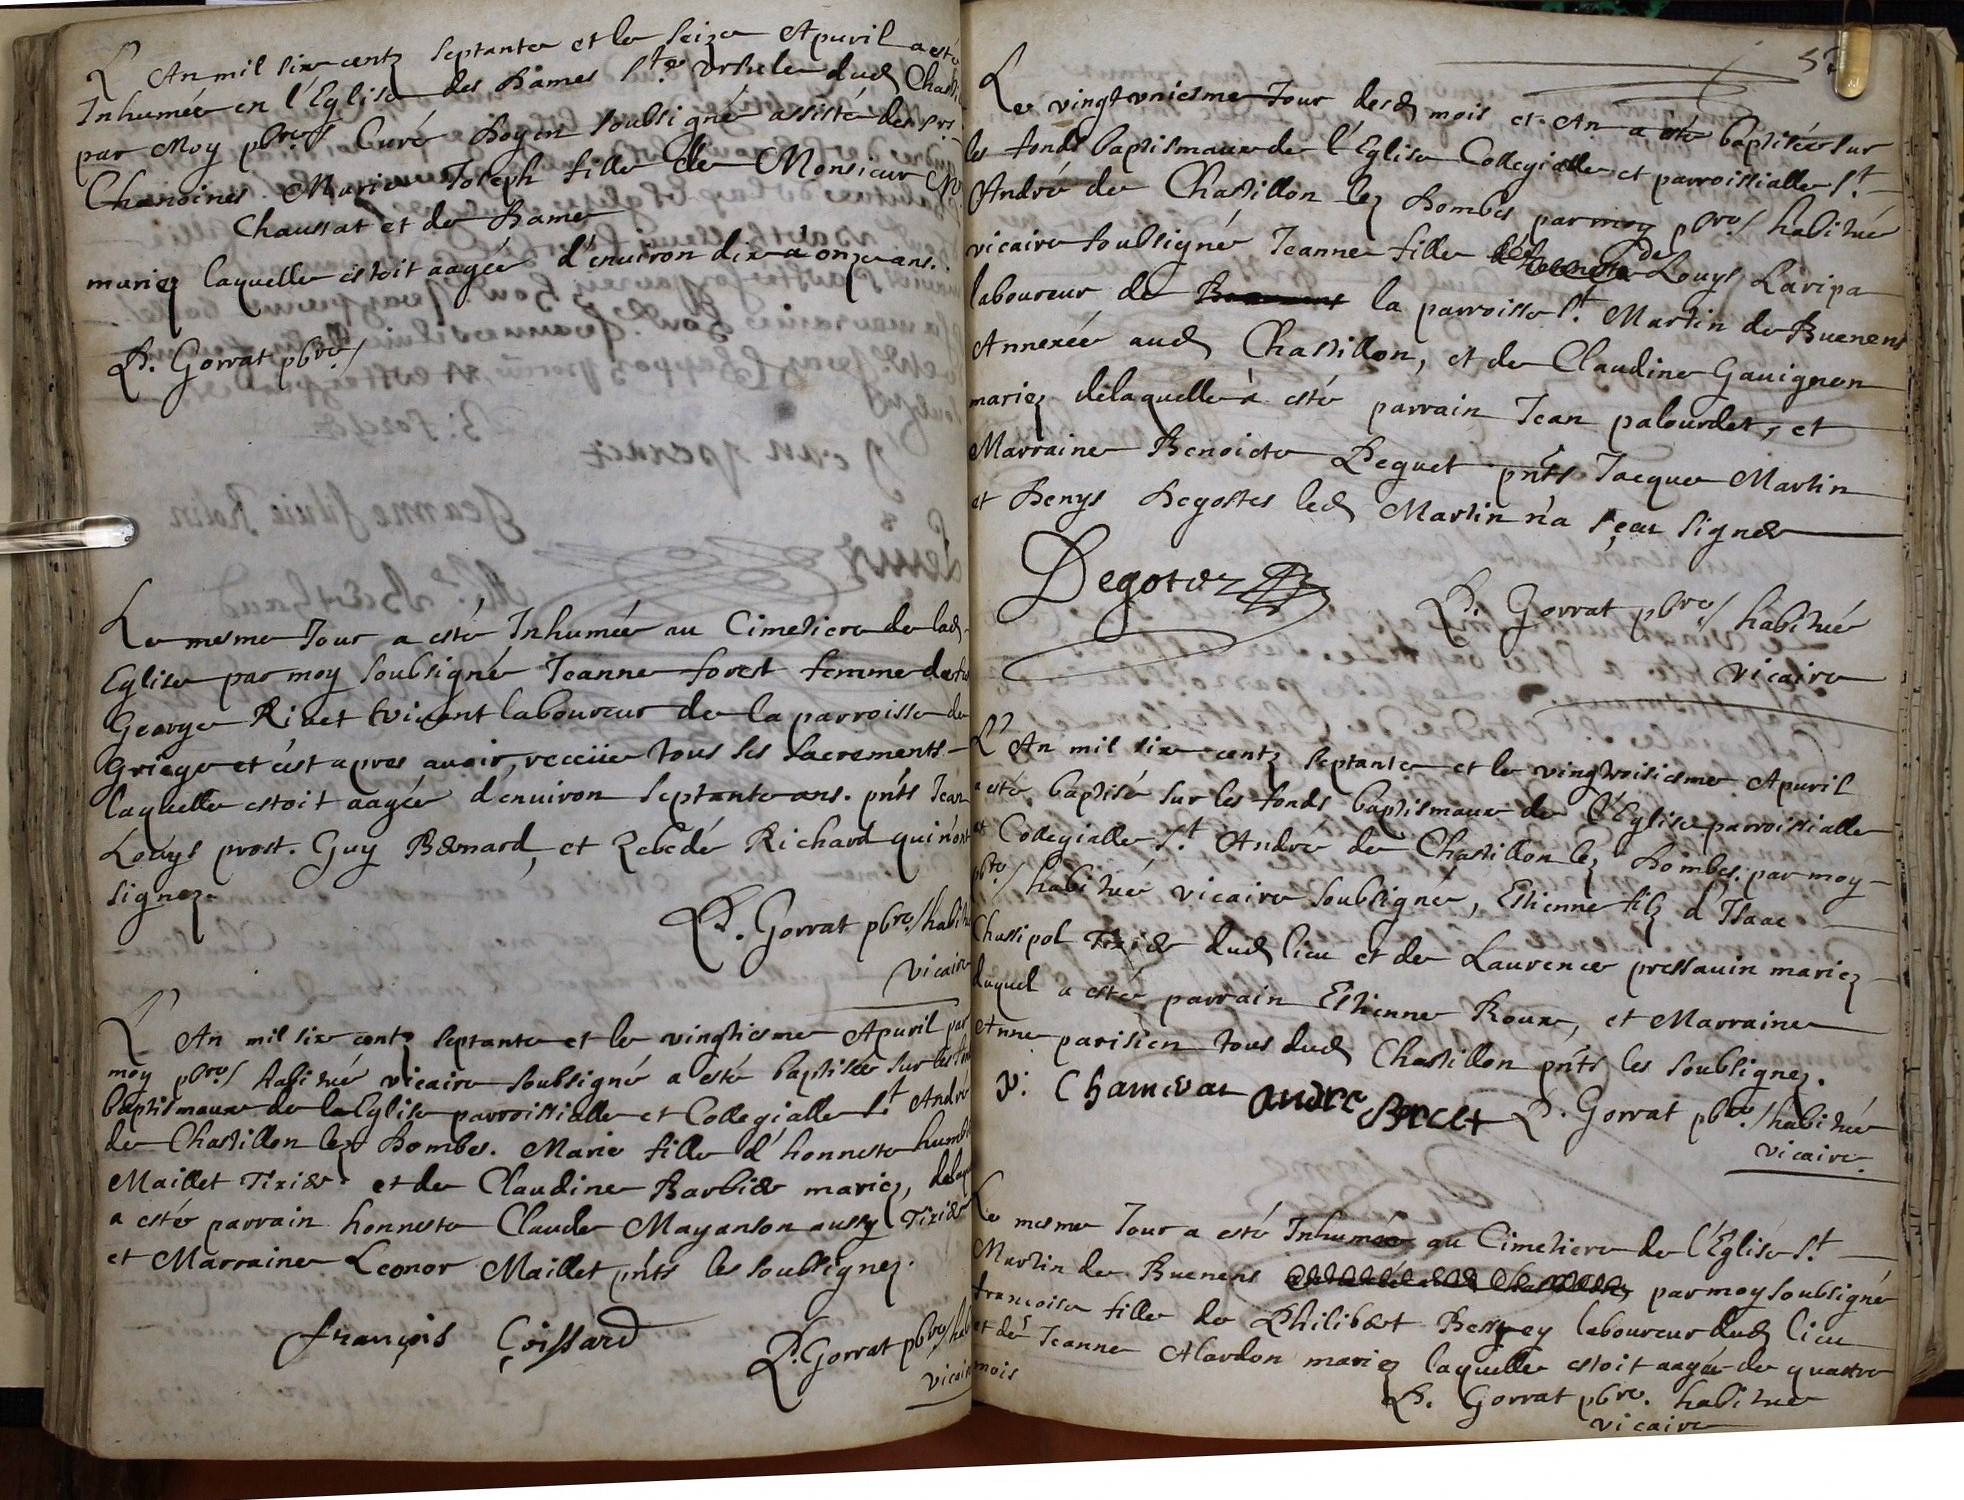 L'An mil six centz septante et le seize Apuril a esté
Inhumée en l'Eglise des Dames Ste Vrsule dud Chast
par Moy pbre Curé Doyen soubsigné assisté des srs
Chanoines Marie Joseph fille de Monsieur
Chaussat et de Dame
mariez laquelle estoit aagée d'enuiron dix à onze ans.
P. Gorrat pbre/
Le mesme Jour a esté Inhumée au Cimetiere de lad
Eglise par moy soubsigné Jeanne forest femme de feu
George Rinet viuant laboureur de la parroisse de
Griege et c'est apres auoir receüe tous ses sacrements
laquelle estoit aagée d'enuiron septante ans. pnts Jean
Loüys prost. Guy Bernard, et Zebedé Richard qui n'ont
signez.
P. Gorrat pbre/ habitu
vicaire
L'An mil six centz septante et le vingtiesme Apuril par
moy pbre/ habitué vicaire soubsigné a esté baptisée sur les fon
baptismaux de l'Eglise parroissialle et Collegialle St André
de Chastillon lez Dombes. Marie fille d'honneste humb
Maillet Tixier et de Claudine Barbier mariez, delaq
a esté parrain honneste Claude Mayanson aussy Tixier
et Marraine Leonor Maillet pnts les soubsignez.
françois Goissard
P. Gorrat pbre/ hab
vicaire
Le vingtvniesme Jour desd mois et An a esté baptisée sur
les fonds baptismaux de l'Eglise Collegialle et parroissialle St
André de Chastillon lez Dombes par moy pbre/ habitué
vicaire soubsigné Jeanne fille de Louys Laripa
laboureur de la parroisse St Martin de Buenens
Annexée aud Chastillon, et de Claudine Gauignon
mariez delaquelle à esté parrain Jean palourdet, et
Marraine Benoicte Peguet pnts Jacque Martin
et Denys Degostes led Martin n'a sçeu signer
Degotez
P. Gorrat pbre/ habitué
vicaire
L'An mil six centz septante et le vingtroisiesme Apuril
a esté baptisé sur les fonds baptismaux de l'Eglise parroissialle
et Collegialle St André de Chastillon lez Dombes par moy
pbre/ habitué vicaire soubsigné, Estienne filz d'Isaac
Chassipol Tixier dud lieu et de Laurence pressauin mariez
duquel a esté parrain Estienne Roux, et Marraine
Anne parisien tous dud Chastillon pnts les soubsignez.
andre P. Gorrat pbre/ habitué
vicaire.
Le mesme Jour a esté Inhumée au Cimetiere de l'Eglise St
Martin de Buenens par moy soubsigné
françoise fille de Philibert Bessey laboureur dud lieu
et de Jeanne Alardon mariez laquelle estoit aagée de quattre
mois
P. Gorrat pbre. habitué
vicaire